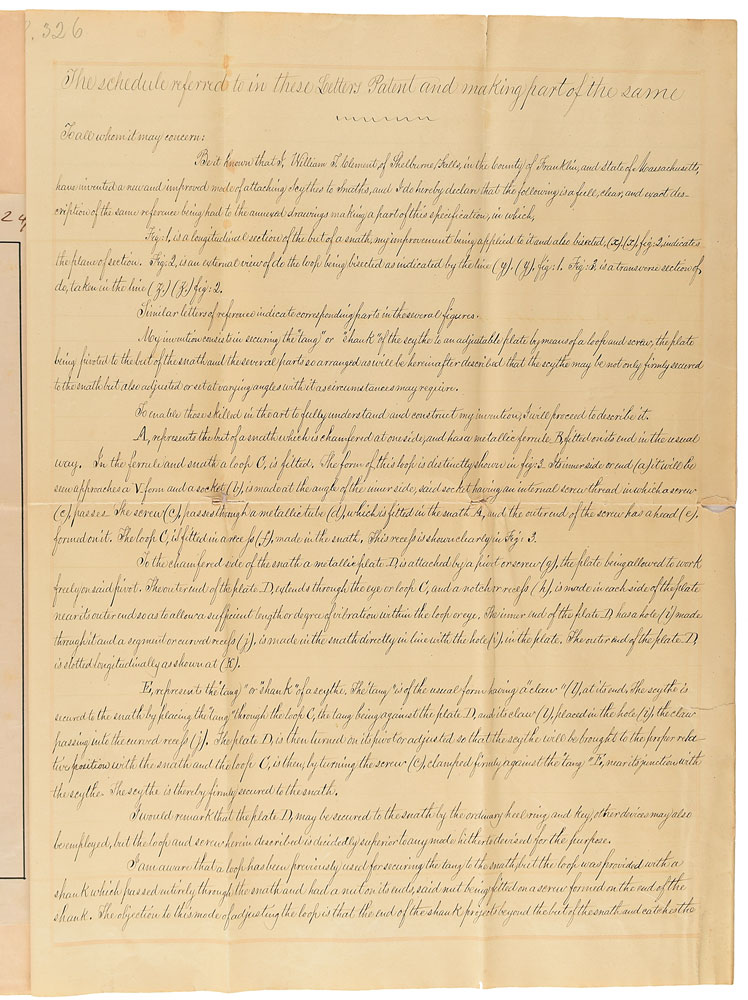 P. 326
The schedule referred to in these Letters Patent and making part of the same
To all whom it may concern:
Be it known that I, William T. Clement, of Shelburne Falls, in the County of Franklin, and State of Massachusetts,
have invented a new and improved mode of attaching Scythes to Snaths, and I do hereby declare that the following is a full, clear, and exact des-
cription of the same reference being had to the annexed drawings making a part of this specification, in which,
Fig: 1, is a longitudinal section of the but of a snath, my improvement being applied to it and also bisected, (x) (x) fig: 2, indicates
the plane of section. Fig: 2, is an external view of do the loop being bisected as indicated by the line (y). (y). fig: 1. Fig: 3, is a transverse section of
do, taken in the line (z.) (z.) fig: 2.
Similar letters of reference indicate corresponding parts in the several figures.
My invention consists in securing the "tang" or "shank" of the scythe to an adjustable plate by means of a loop and screw, the plate
being pivoted to the but of the snath and the several parts so arranged as will be hereinafter described that the scythe may be not only firmly secured
to the snath but also adjusted or set at varying angles with it as circumstances may require.
To enable those skilled in the art to fully understand and construct my invention, I will proceed to describe it.
A, represents the but of a snath which is chamfered at one side, and has a metallic ferrule B, fitted on its end in the usual
way. In the ferrule and snath a loop C, is fitted. The form of this loop is distinctly shown in fig: 3. Its inner side or end (a) it will be
seen approaches a V form and a socket (b), is made at the angle of the inner side, said socket having an internal screw thread in which a screw
(c), passes. The screw (c), passes through a metallic tube (d), which is fitted in the snath A, and the outer end of the screw has a head (e),
formed on it. The loop C, is fitted in a recess (f), made in the snath. This recess is shown clearly in Fig: 3.
To the chamfered side of the snath a metallic plate D, is attached by a pivot or screw (g), the plate being allowed to work
freely on said pivot. The outer end of the plate D, extends through the eye or loop C, and a notch or recess (h), is made in each side of the plate
near its outer end so as to allow a sufficient length or degree of vibration within the loop or eye. The inner end of the plate D has a hole (i) made
through it and a segment or curved recess (j), is made in the snath directly in line with the hole (i) in the plate. The outer end of the plate D,
is slotted longitudinally as shown at (K).
E, represents the "tang" or "shank" of a scythe. The "tang" is of the usual form having a "claw" (l), at its end. The scythe is
secured to the snath by placing the "tang" through the loop C, the tang being against the plate D, and its claw (l), placed in the hole (i), the claw
passing into the curved recess (j). The plate D, is then turned on its pivot or adjusted so that the scythe will be brought to the proper rela-
tive position with the snath and the loop C, is then, by turning the screw (c), clamped firmly against the "tang" E, near its junction with
the scythe. The scythe is thereby firmly secured to the snath.
I would remark that the plate D, may be secured to the snath by the ordinary heel ring and key, other devices may also
be employed, but the loop and screw herein described is decidedly superior to any mode hitherto devised for the purpose.
I am aware that a loop has been previously used for securing the tang to the snath, but the loop was provided with a
shank which passed entirely through the snath and had a nut on its ends, said nut being fitted on a screw formed on the end of the
shank. The objection to this mode of adjusting the loop is that the end of the shank projects beyond the but of the snath and catches the